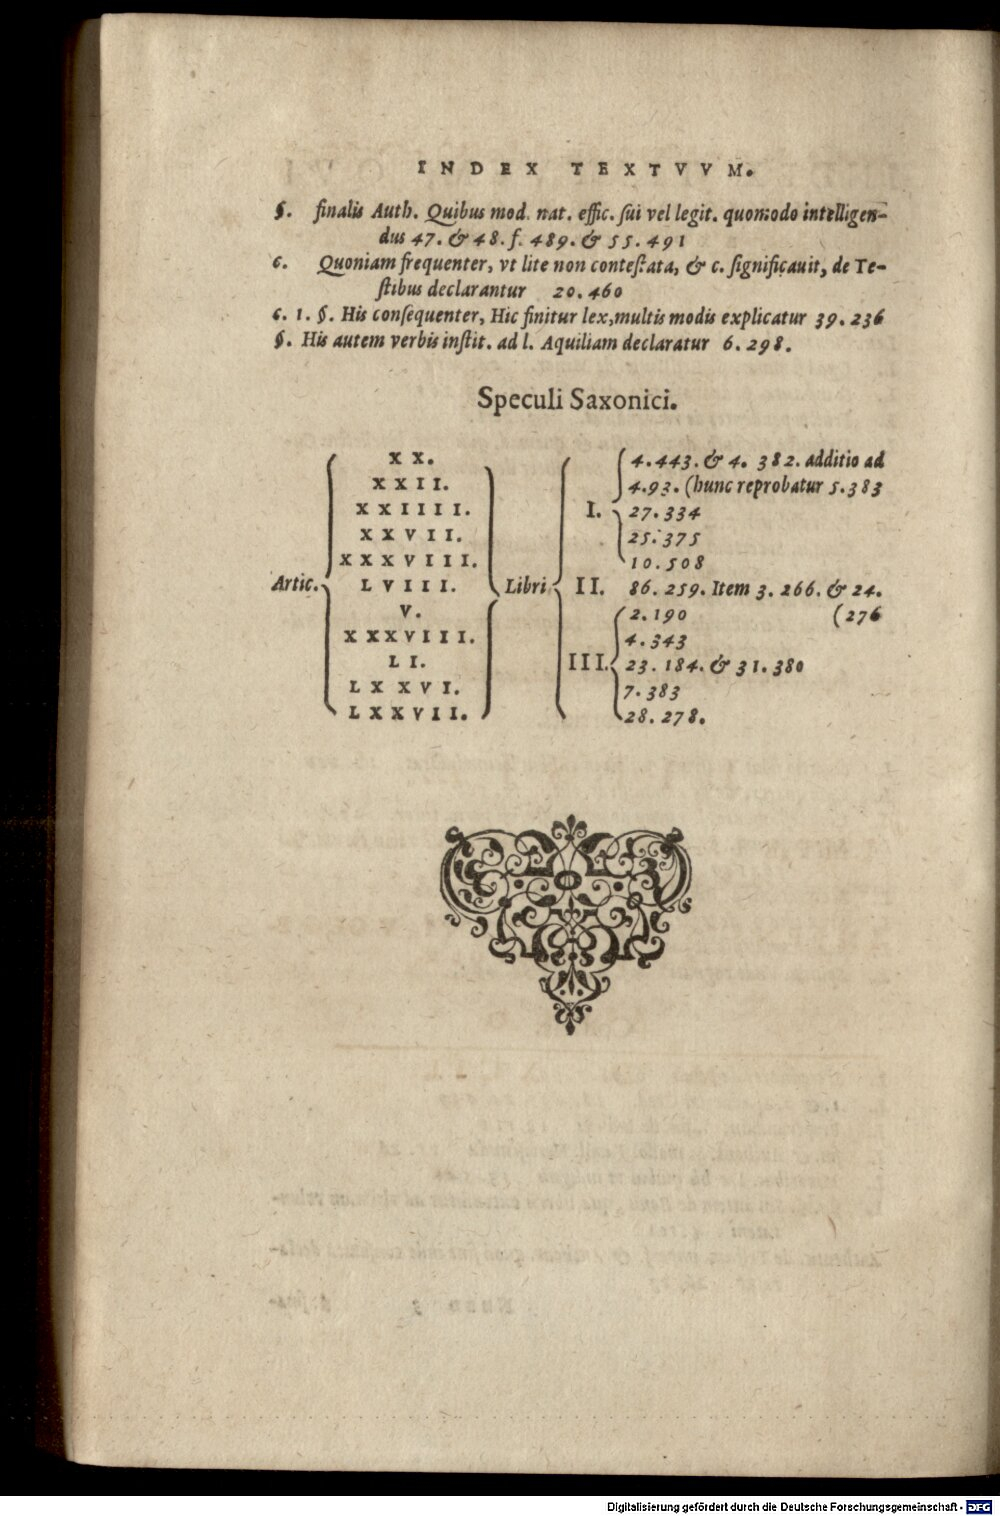 INDEX TEXTVVM.
§. finalis Auth. Quibus mod. nat. effic. sui vel legit. quomodo intelligen-
dus 47. & 48. f. 489. & 55. 491
c. Quoniam frequenter, vt lite non contestata, & c. significauit, de Te-
stibus declarantur 20. 460
c. 1. §. His consequenter, Hic finitur lex, multis modis explicatur 39. 236
§. His autem verbis instit. ad l. Aquiliam declaratur 6. 298.
Speculi Saxonici.
XX. 4. 443. & 4. 382. additio ad
XXII. 4. 93. (hunc reprobatur 5. 383
XXIIII. I. 27. 334
XXVII. 25. 375
XXXVIII. 10. 508
Artic. LVIII. Libri II. 86. 259. Item 3. 266. & 24.
V. 2. 190 (276
XXXVIII. 4. 343
LI. III. 23. 184. & 31. 380
LXXVI. 7. 383
LXXVII. 28. 278.
Digitalisierung gefördert durch die Deutsche Forschungsgemeinschaft - DFG